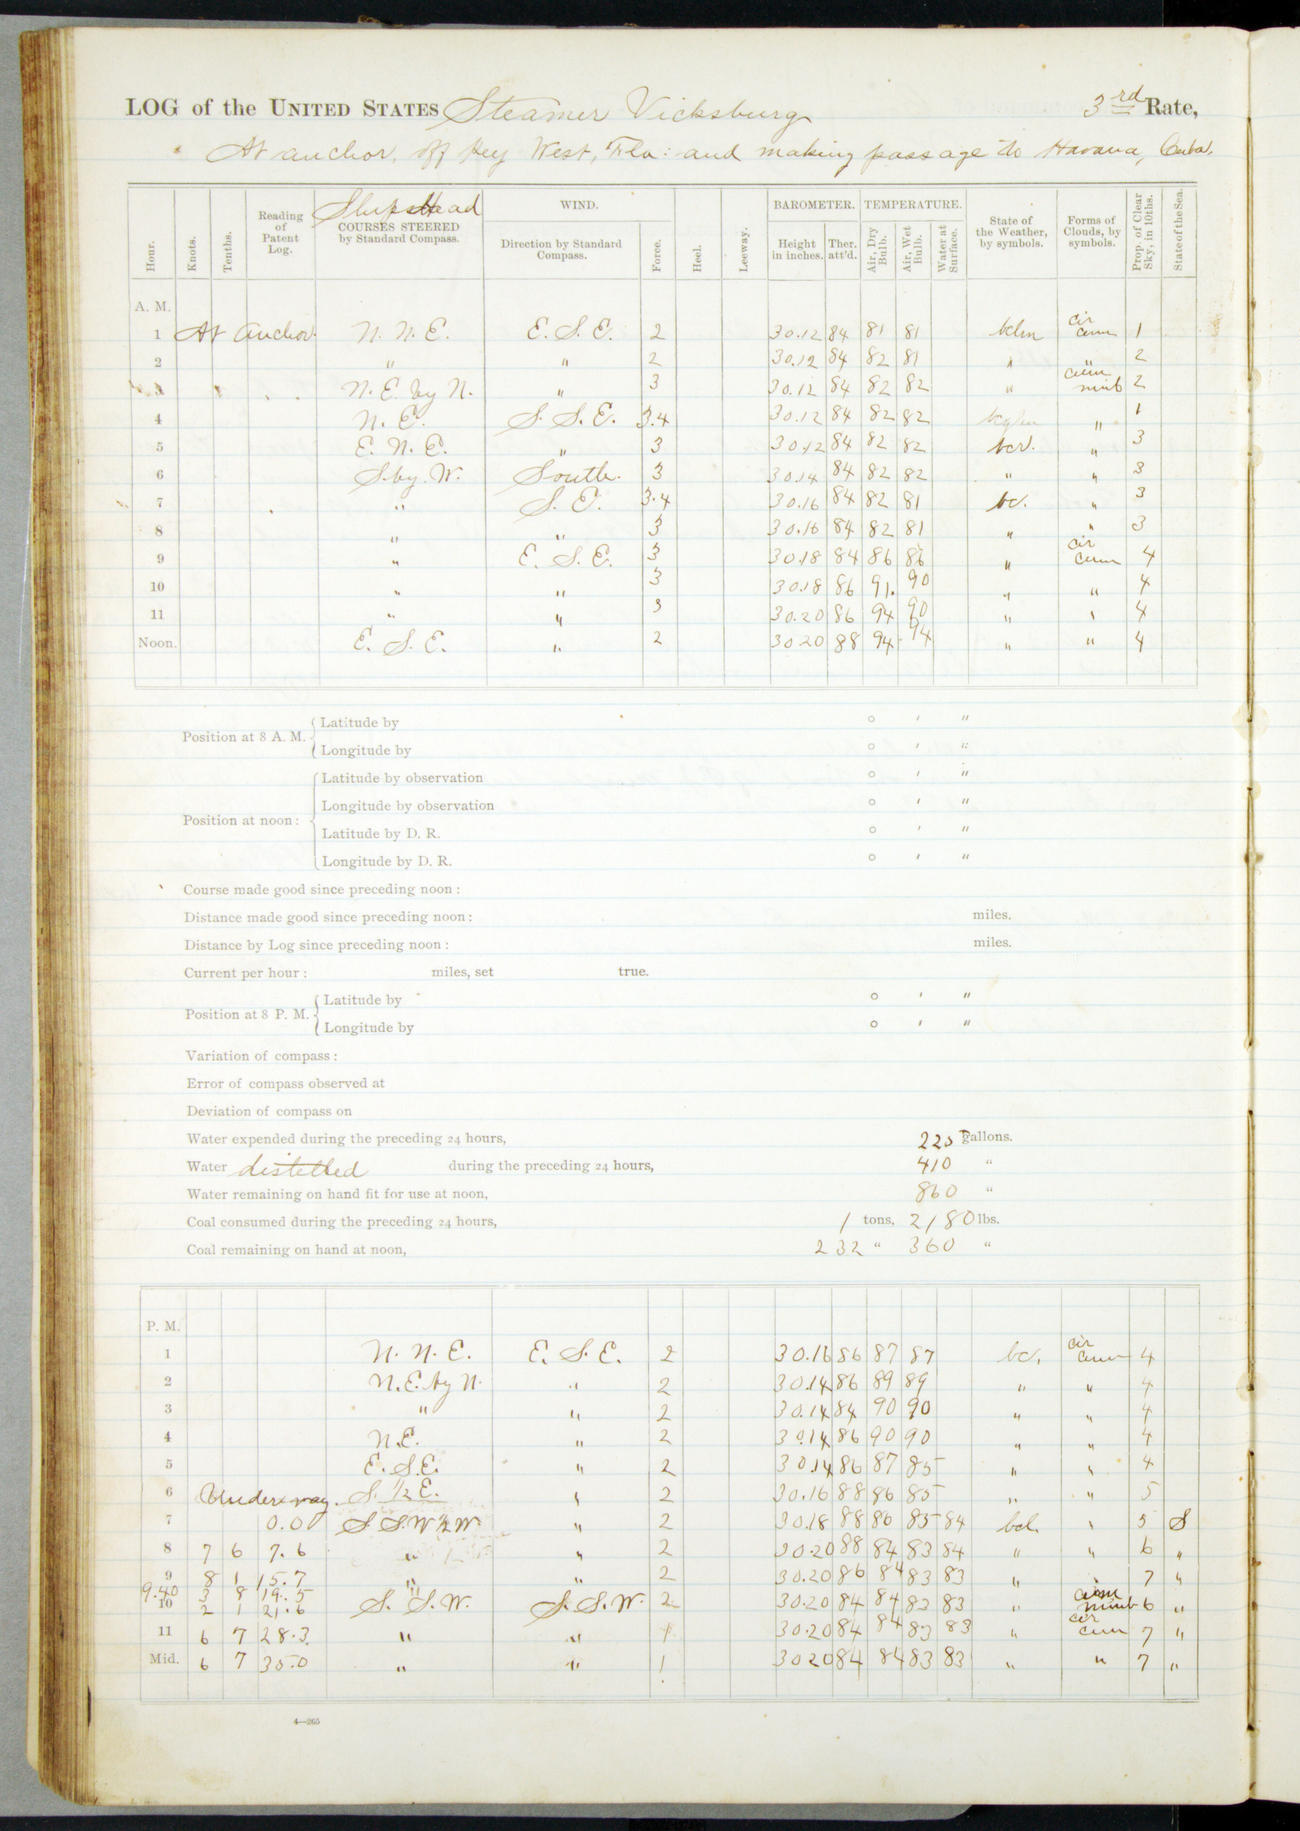 LOG of the UNITED STATES Steamer Vicksburg 3rd Rate,
At anchor, off Key West, Fla: and making passage to Havana, Cuba.
Hour. Knots. Tenths. Reading of Patent Log. Ships Head COURSES STEERED by Standard Compass. WIND. Direction by Standard Compass. Force. Heel. Leeway. BAROMETER. Height in inches. Ther. att'd. TEMPERATURE. Air, Dry Bulb. Air, Wet Bulb. Water at Surface. State of the Weather, by symbols. Forms of Clouds, by symbols. Prop. of Clear Sky, in 10ths. State of the Sea.
A. M.
1 At anchor. N. N. E. E. S. E. 2 30.12 84 81 81 bclm cir cum 1
2 " " 2 30.12 84 82 81 " " 2
3 N. E. by N. " 3 30.12 84 82 82 " cum nimb 2
4 N. E. S. S. E. 3.4 30.12 84 82 82 " 1
5 E. N. E. " 3 30.12 84 82 82 bcv. " 3
6 S. by. W. South. 3 30.14 84 82 82 " " 3
7 " S. E. 3.4 30.16 84 82 81 bc. " 3
8 " " 3 30.16 84 82 81 " " 3
9 " E. S. E. 3 30.18 84 86 86 " cir cum 4
10 " " 3 30.18 86 91. 90 " " 4
11 " " 3 30.20 86 94 90 " " 4
Noon. E. S. E. " 2 30.20 88 94 94 " " 4
Position at 8 A. M. Latitude by ° ' "
Longitude by ° ' "
Position at noon: Latitude by observation ° ' "
Longitude by observation ° ' "
Latitude by D. R. ° ' "
Longitude by D. R. ° ' "
Course made good since preceding noon:
Distance made good since preceding noon: miles.
Distance by Log since preceding noon: miles.
Current per hour: miles, set true.
Position at 8 P. M. Latitude by ° ' "
Longitude by ° ' "
Variation of compass:
Error of compass observed at
Deviation of compass on
Water expended during the preceding 24 hours, 225 gallons.
Water distilled during the preceding 24 hours, 410 "
Water remaining on hand fit for use at noon, 860 "
Coal consumed during the preceding 24 hours, 1 tons, 2180 lbs.
Coal remaining on hand at noon, 232 " 360 "
P. M.
1 N. N. E. E. S. E. 2 30.16 86 87 87 bc. cir cum 4
2 N. E. by N. " 2 30.14 86 89 89 " " 4
3 " " 2 30.14 84 90 90 " " 4
4 N. E. " 2 30.14 86 90 90 " " 4
5 E. S. E. " 2 30.14 86 87 85 " " 4
6 Underway. S. 1/2 E. " 2 30.16 88 86 85 " " 5
7 0.0 S. S. W 1/2 W. " 2 30.18 88 86 85 84 bcl. " 5 S
8 7 6 7.6 " " 2 30.20 88 84 83 84 " " 6 "
9 8 1 15.7 " " 2 30.20 86 84 83 83 " " 7 "
9.40 3 8 19.5
10 2 1 21.6 S. S. W. S. S. W. 2 30.20 84 84 83 83 " cum nimb 6 "
11 6 7 28.3 " " 1 30.20 84 84 83 83 " cir cum 7 "
Mid. 6 7 35.0 " " 1 30.20 84 84 83 83 " " 7 "
4—265